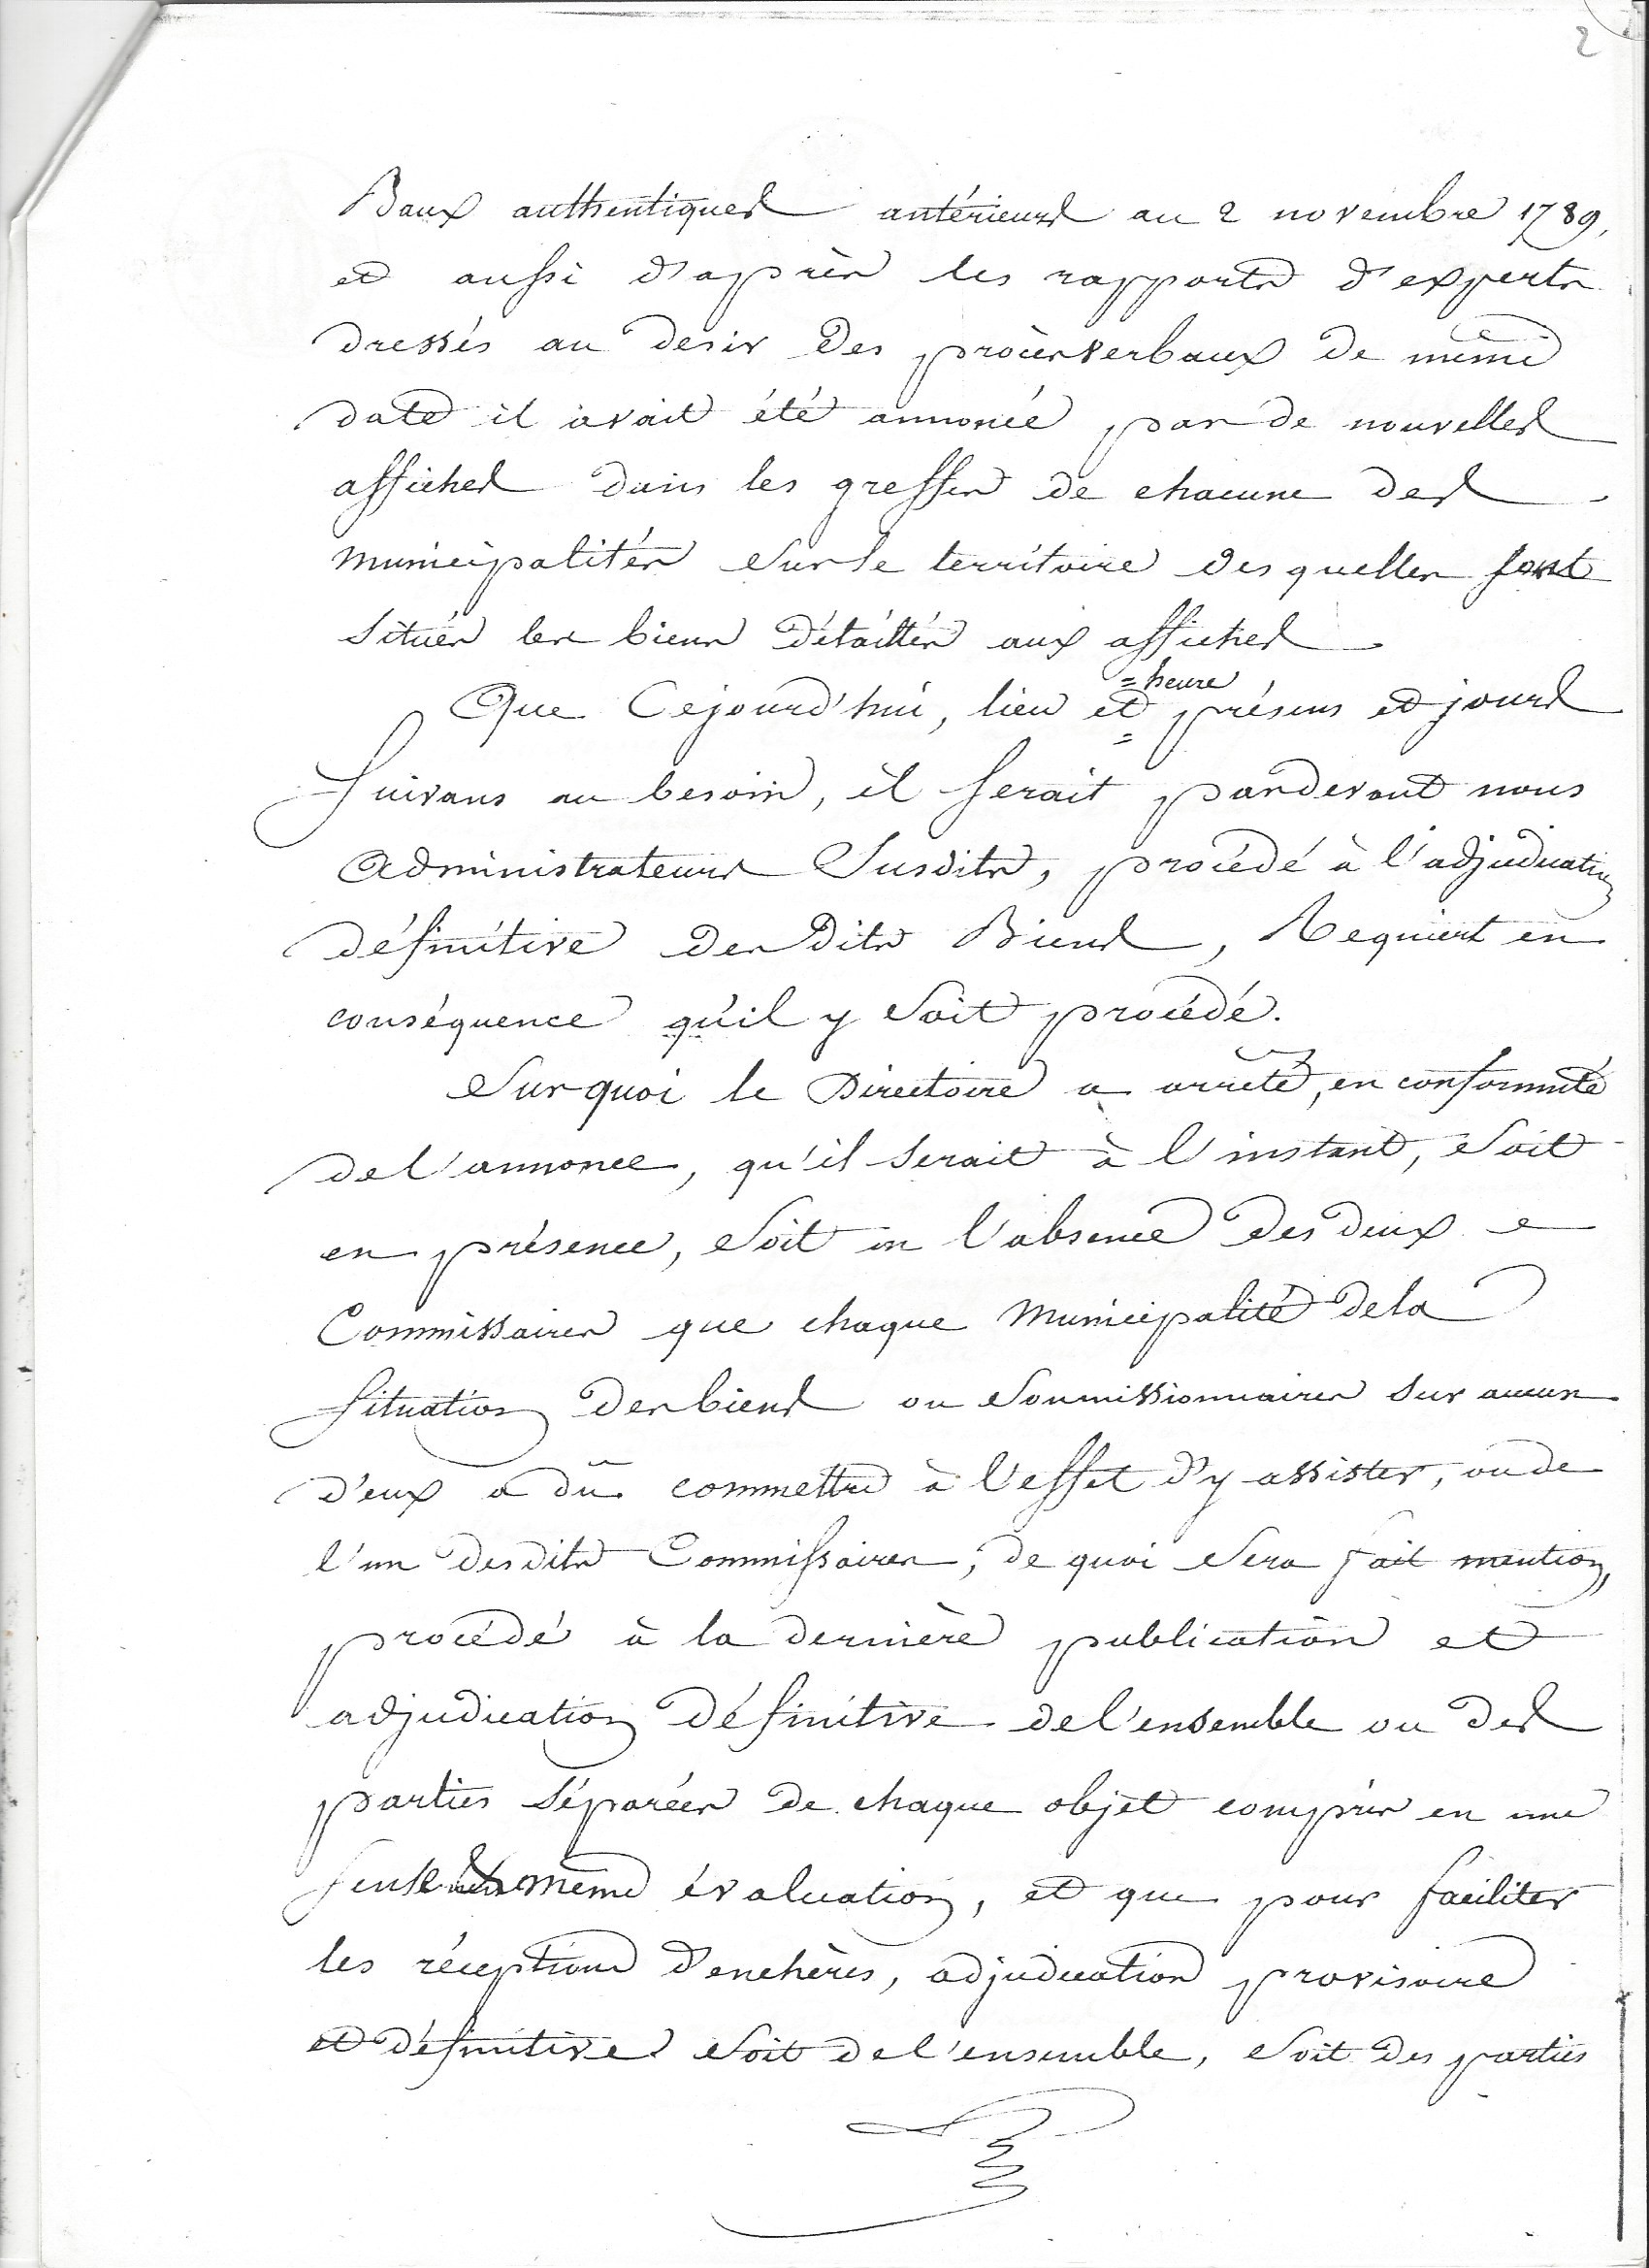 2
Baux authentiques antérieurs au 2 novembre 1789,
et aussi d'après les rapports d'experts
dressés au desir des procèsverbaux de même
date il avait été annoncé par de nouvelles
affiches dans les greffes de chacune des
municipalités sur le territoire desquelles sont
situés les biens détaillés aux affiches
=heure
Que Cejourd'hui, lieu et présens et jours
suivans au besoin, il serait pardevant nous
administrateurs susdits, procédé à l'adjudication
définitive desdits Biens, Requiert en
conséquence qu'il y soit procédé.
Sur quoi le Directoire a arrêté, en conformité
de l'annonce, qu'il serait à l'instant, soit
en présence, soit en l'absence des deux
Commissaires que chaque Municipalité dela
situation des biens ou soumissionnaires sur aucun
d'eux a dû commettre à l'effet d'y assister, ou de
l'un desdits Commissaires, de quoi sera fait mention,
procédé à la dernière publication et
adjudication définitive de l'ensemble ou des
parties séparées de chaque objet compris en une
seule & même évaluation, et que pour faciliter
les réceptions d'enchères, adjudication provisoire
et définitive soit de l'ensemble, soit des parties